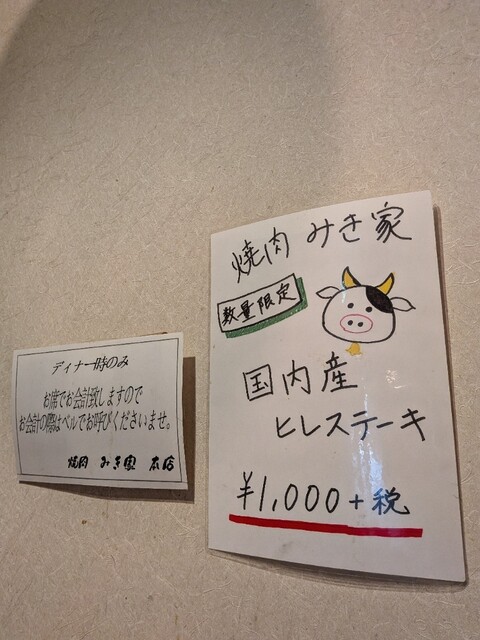 ディナー時のみ
お席でお会計致しますので
お会計の際はベルでお呼びくださいませ。
焼肉 みき家 本店
焼肉 みき家
数量限定
国内産
ヒレステーキ
¥1,000+税